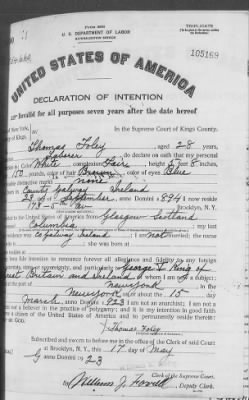 Form 2203
TRIPLICATE
U. S. DEPARTMENT OF LABOR
NATURALIZATION SERVICE
105169
UNITED STATES OF AMERICA
DECLARATION OF INTENTION
Invalid for all purposes seven years after the date hereof
In the Supreme Court of Kings County.
Thomas Foley, aged 28 years,
Laborer, do declare on oath that my personal
White, complexion Fair, 5 feet 8 inches,
150 pounds, color of hair Brown, color of eyes Blue
distinctive marks none
County Galway Ireland
23 September, anno Domini 1894; I now reside
Brooklyn, N. Y.
the United States of America from Glasgow Scotland
Columbia; my last
Co Galway Ireland; I am not married; the name
; she was born at
It is my bona fide intention to renounce forever all allegiance and fidelity to any foreign
state, or sovereignty, and particularly to George V King of
Great Britain and Ireland, of whom I am now a subject;
port of New York
New York, on or about the 15 day
March, anno Domini 1923; I am not an anarchist; I am not a
nor a believer in the practice of polygamy; and it is my intention in good faith
citizen of the United States of America and to permanently reside therein:
GOD.
Thomas Foley
Subscribed and sworn to before me in the office of the Clerk of said Court
at Brooklyn, N. Y., this 17 day of May
anno Domini 1923
Clerk of the Supreme Court.
By William J.
Deputy Clerk.